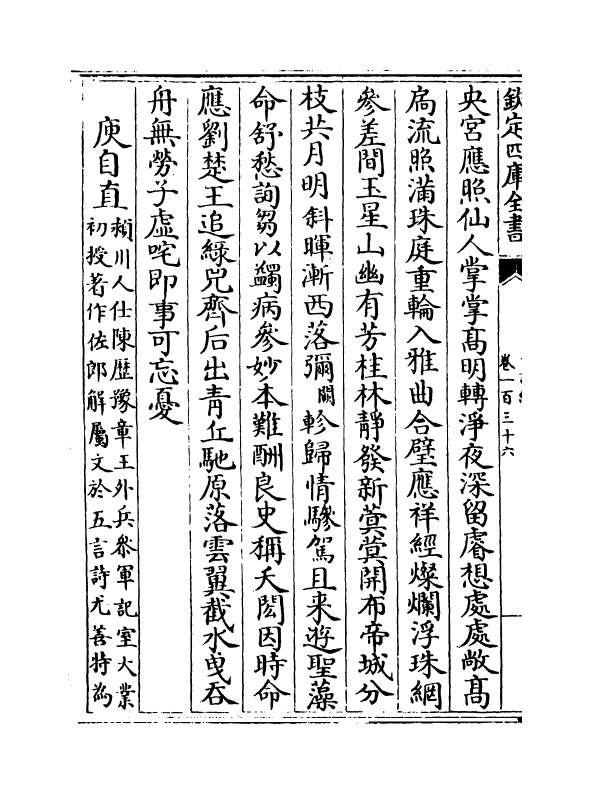 欽定四庫全書
卷一百三十六
央宮應照仙人掌掌髙明轉淨夜深留睿想處處敞髙
扄流照滿珠庭重輪入雅曲合璧應祥經燦爛浮珠網
參差間玉星山幽有芳桂林靜發新蓂蓂開布帝城分
枝共月明斜暉漸西落彌闕軫歸情驂駕且来遊聖藻
命舒愁詢芻以蠲病參妙本難酬良史稱天閎因時命
應劉楚王追綠兕齊后出青丘馳原落雲翼截水曳吞
舟無勞子虛咤即事可忘憂
庾自直
潁川人仕陳歴豫章王外兵參軍記室大業
初授著作佐郎解屬文於五言詩尤善特為